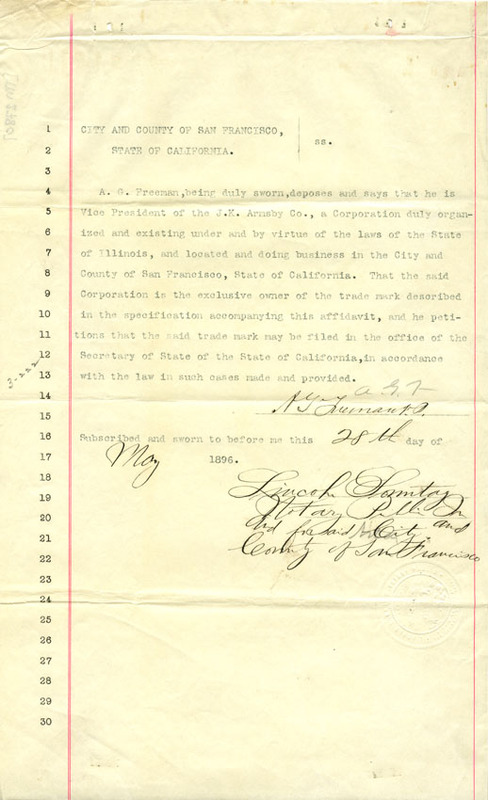 1 CITY AND COUNTY OF SAN FRANCISCO,
ss.
2 STATE OF CALIFORNIA.
3
4 A. G. Freeman,being duly sworn,deposes and says that he is
5 Vice President of the J.K. Armsby Co., a Corporation duly organ-
6 ized and existing under and by virtue of the laws of the State
7 of Illinois, and located and doing business in the City and
8 County of San Francisco, State of California. That the said
9 Corporation is the exclusive owner of the trade mark described
10 in the specification accompanying this affidavit, and he peti-
11 tions that the said trade mark may be filed in the office of the
12 Secretary of State of the State of California,in accordance
3-222
13 with the law in such cases made and provided.
14 A. G. F
15 A G Freeman V.P.
16 Subscribed and sworn to before me this 28th day of
17 May 1896.
18 Lincoln Sonntag
19 Notary Public In
20 and for said City and
21 County of San Francisco
22
23
24
25
26
27
28
29
30